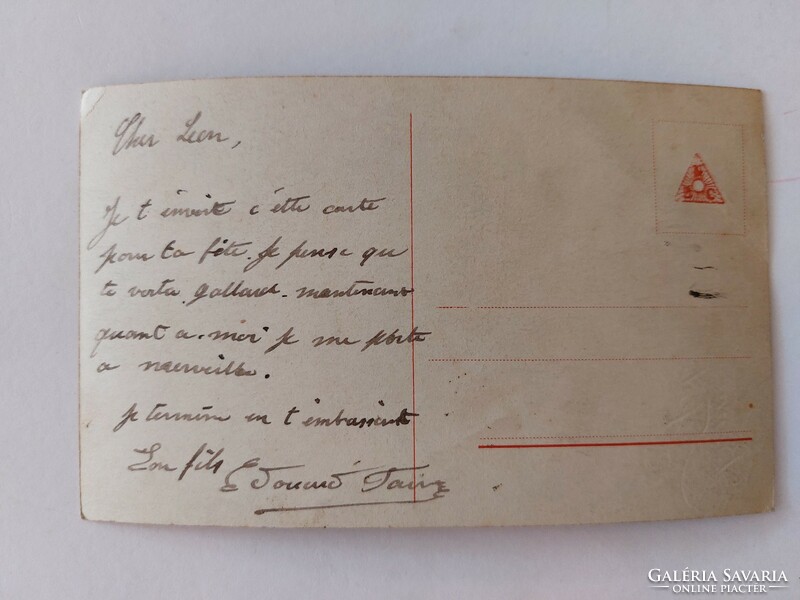 Cher Leon,
Je t'envoite c'ette carte
pour ta fête. Je pense que
te voita gallard. maintenant
quant a. moi je me porte
a merveille.
je termine en t'embassent
Ton fils Edouard
M
S C
GALÉRIA SAVARIA
ONLINE PIACTÉR